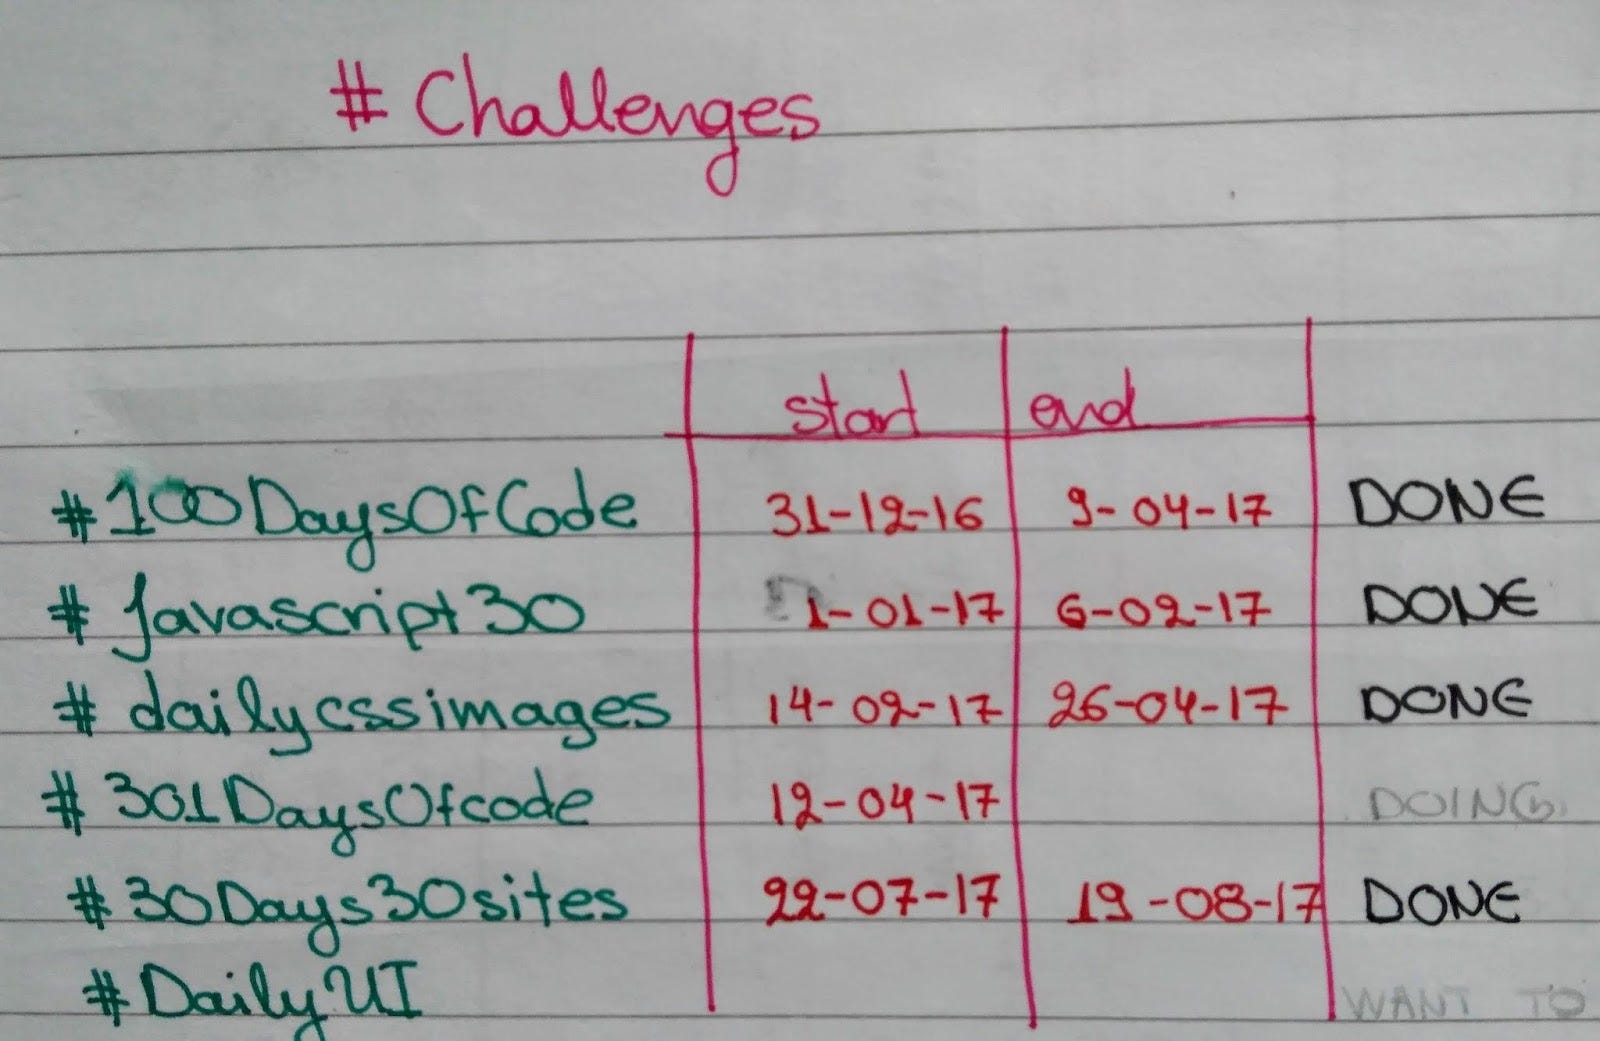 # Challenges
start end
#100DaysOfCode 31-12-16 9-04-17 DONE
# Javascript30 1-01-17 6-02-17 DONE
# dailycssimages 14-02-17 26-04-17 DONE
# 301DaysOfcode 12-04-17 DOING
#30Days30sites 22-07-17 19-08-17 DONE
#DailyUI WANT TO